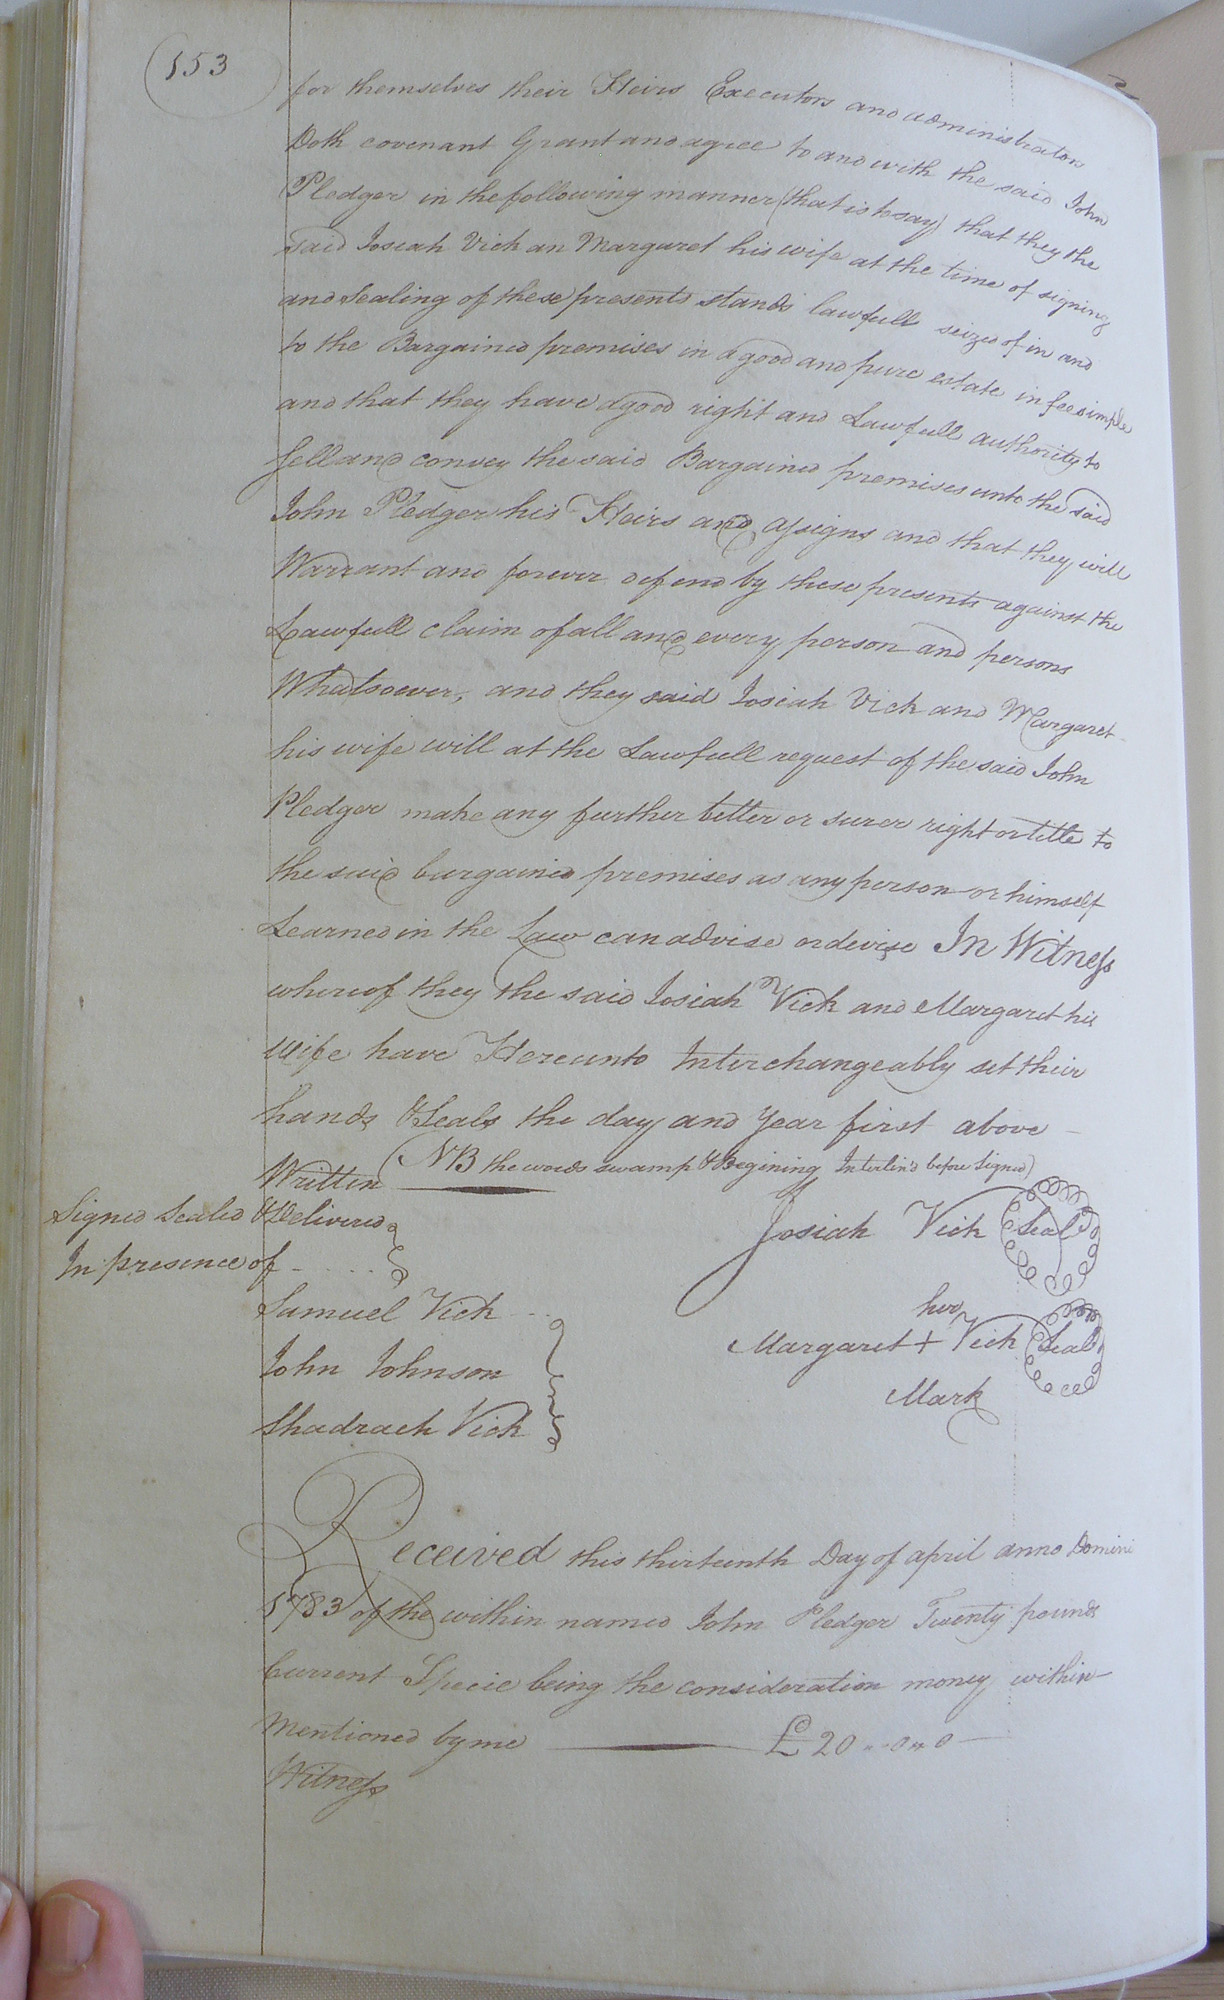 153
for themselves their Heirs Executors and administrators
Doth covenant Grant and agree to and with the said John
Pledger in the following manner (that is to say) that they the
said Josiah Vick an Margaret his wife at the time of signing
and Sealing of these presents stands lawfull seized of in and
to the Bargained premises in a good and pure estate in fee simple
and that they have a good right and Lawfull authority to
Sell and convey the said Bargained premises unto the said
John Pledger his Heirs and assigns and that they will
Warrant and forever defend by these presents against the
Lawfull claim of all and every person and persons
Whatsoever, and they said Josiah Vick and Margaret
his wife will at the Lawfull request of the said John
Pledger make any further better or surer right or title to
the said bargained premises as any person or himself
Learned in the Law can advise or devise In Witness
whereof they the said Josiah Vick and Margaret his
Wife have Hereunto Interchangeably set their
hands & Seals the day and Year first above
Written (NB the words swamp & Begining Interlin'd before Signed)
Signed Sealed & Delivered
In presence of
Josiah Vick Seal
Samuel Vick
John Johnson
Shadrach Vick
her
Margaret + Vick Seal
Mark
Received this thirteenth Day of april anno Domini
1783 of the within named John Pledger Twenty pounds
Current Specie being the consideration money within
Mentioned by me £ 20 .. 0 " 0
Witness